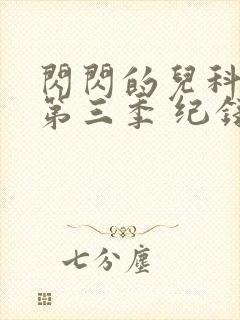 閃閃的兒科
第三季 纪
七分塵